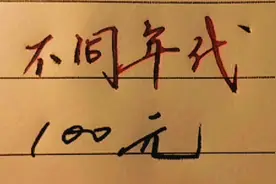 不同年代
100元